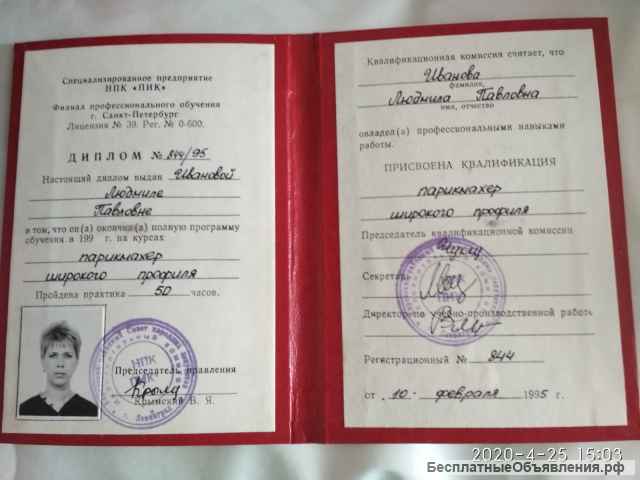 Специализированное предприятие
НПК «ПИК»
Филиал профессионального обучения
г. Санкт-Петербург
Лицензия № 39. Рег. № 0-600.
ДИПЛОМ № 844/95
Настоящий диплом выдан Ивановой
Людмиле
Павловне
в том, что он(а) окончил(а) полную программу
обучения в 199 г. на курсах
парикмахер
широкого профиля
Пройдена практика 50 часов.
НПК
ПИК
Ленинград
Председатель правления
Крымский В. Я.
Квалификационная комиссия считает, что
Иванова
фамилия,
Людмила Павловна
имя, отчество
овладел(а) профессиональными навыками
работы.
ПРИСВОЕНА КВАЛИФИКАЦИЯ
парикмахер
широкого профиля
Председатель квалификационной комиссии
Секретарь
Директор по учебно-производственной работе
Регистрационный № 844
от „10" февраля 1995 г.
2020-4-25 15:03
БесплатныеОбъявления.рф